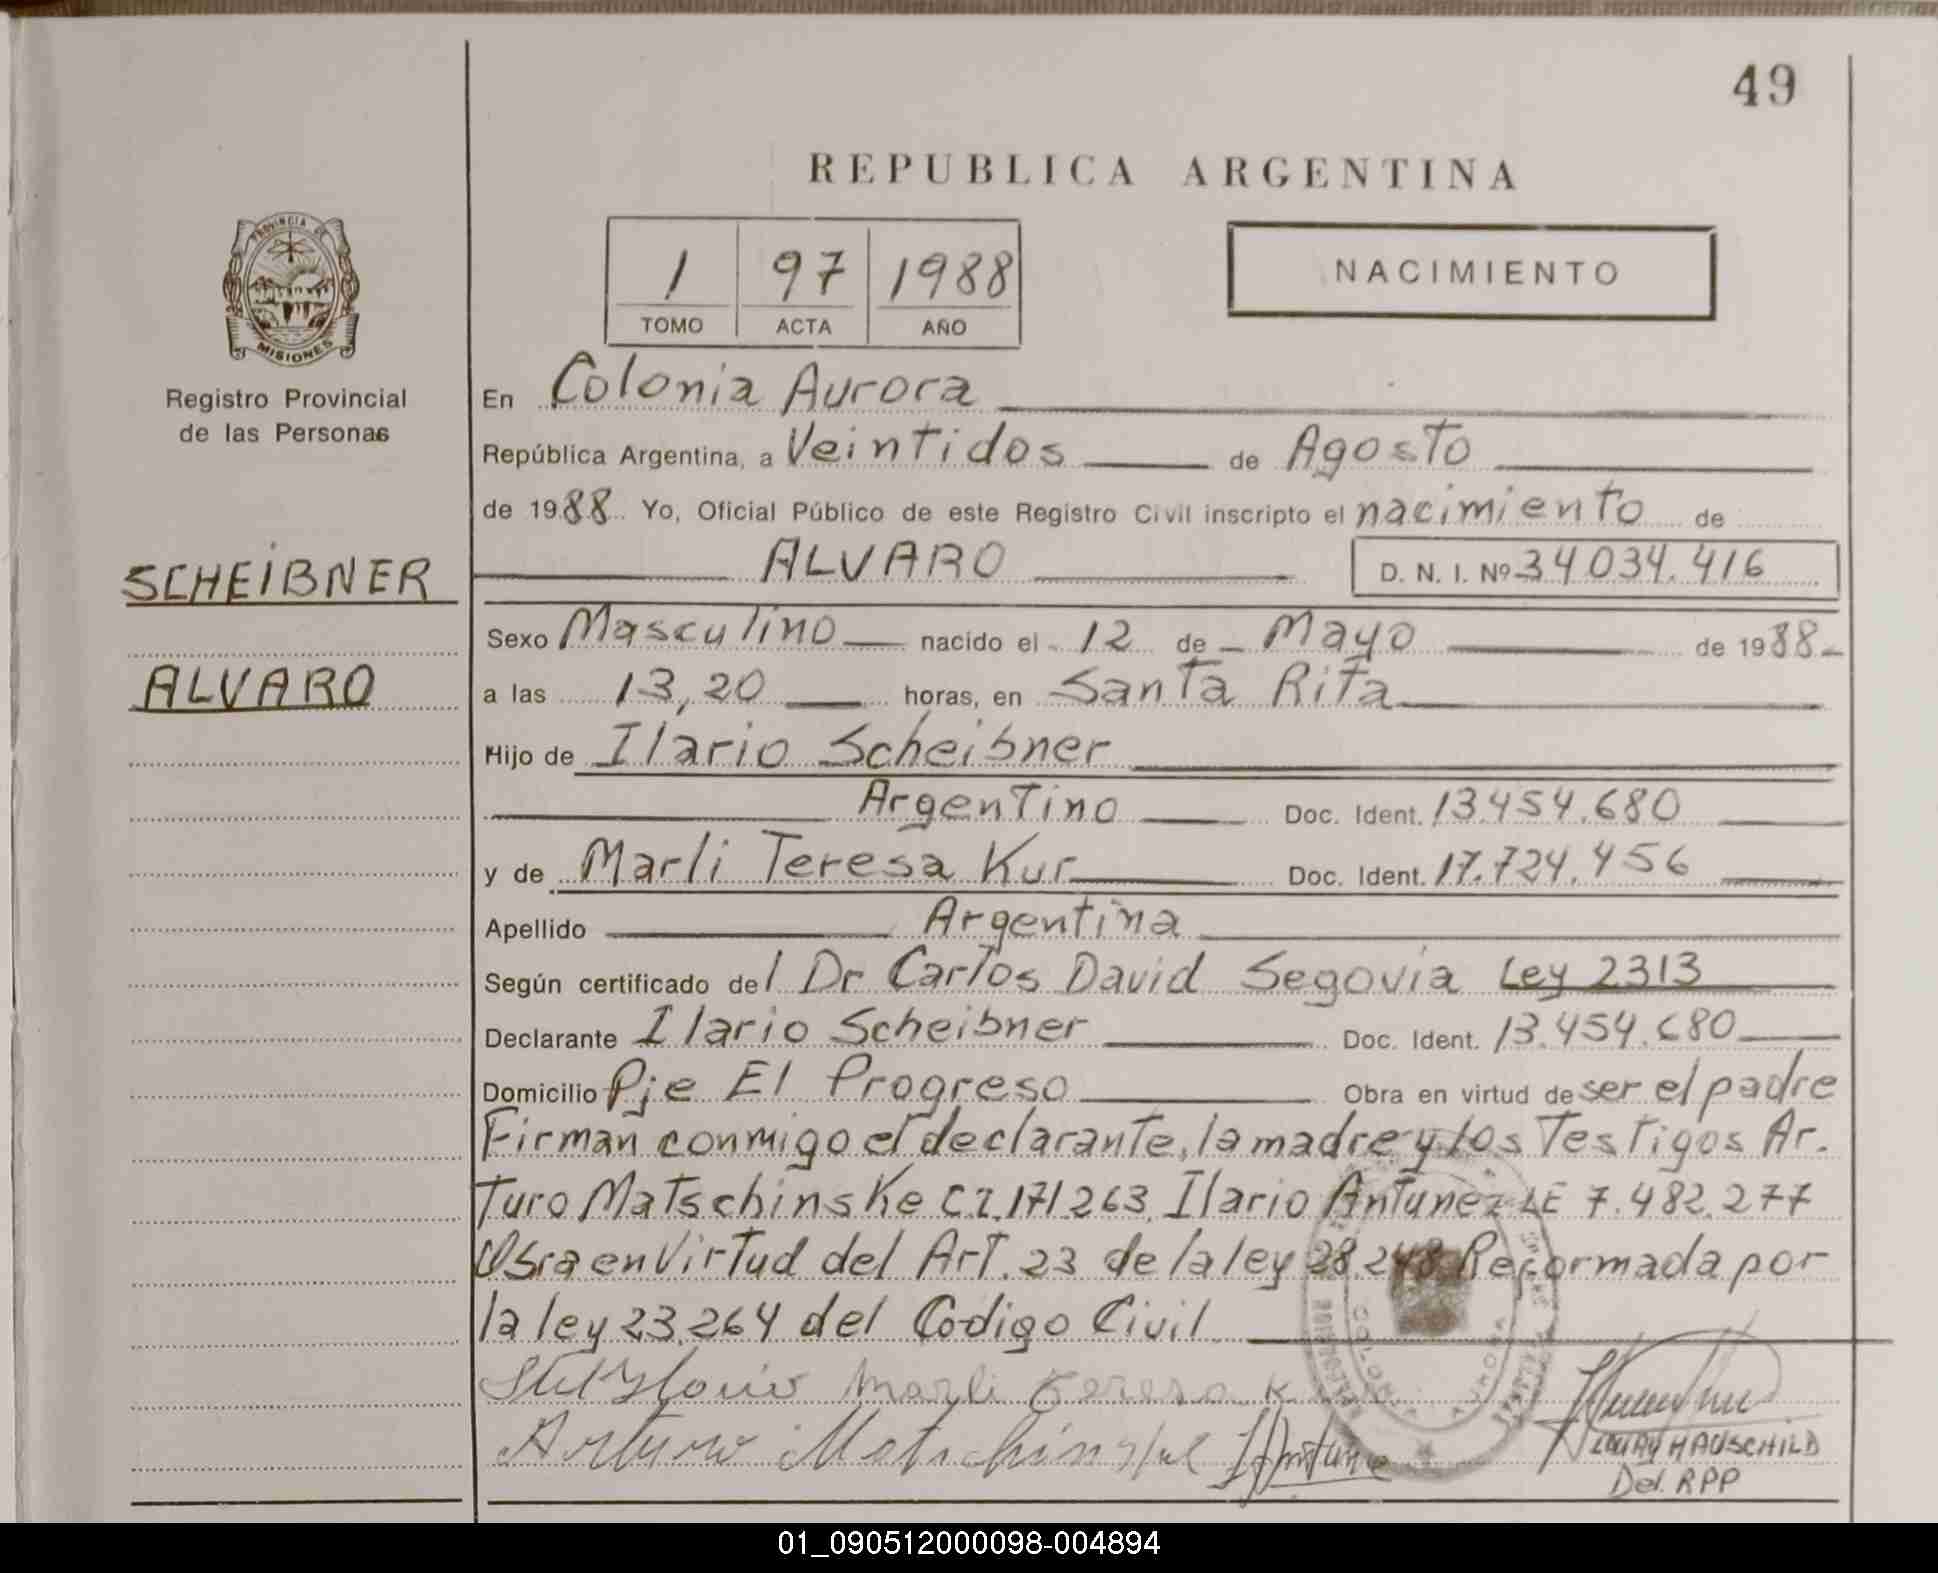 49
REPUBLICA ARGENTINA
PROVINCIA DE
MISIONES
1 97 1988
TOMO ACTA AÑO
NACIMIENTO
Registro Provincial
de las Personas
SCHEIBNER
ALVARO
En Colonia Aurora
República Argentina, a Veintidos de Agosto
de 1988 Yo, Oficial Público de este Registro Civil inscripto el nacimiento de
ALVARO D. N. I. Nº 34034.416
Sexo Masculino nacido el 12 de Mayo de 1988
a las 13,20 horas, en Santa Rita
Hijo de Ilario Scheibner
Argentino Doc. Ident. 13.454.680
y de Marli Teresa Kur Doc. Ident. 17.724.456
Apellido Argentina
Según certificado del Dr Carlos David Segovia Ley 2313
Declarante Ilario Scheibner Doc. Ident. 13.454.680
Domicilio Pje El Progreso Obra en virtud de ser el padre
Firman conmigo el declarante, la madre y los Testigos Ar.
Turo Matschinske C.I. 171.263, Ilario Antunez LE 7.482.277
Obra en Virtud del Art. 23 de la ley 28.248 Reformada por
la ley 23.264 del Codigo Civil
Marli Teresa K
Arturo
COLONIA AURORA
HAUSCHILD
Del. RPP
01_090512000098-004894